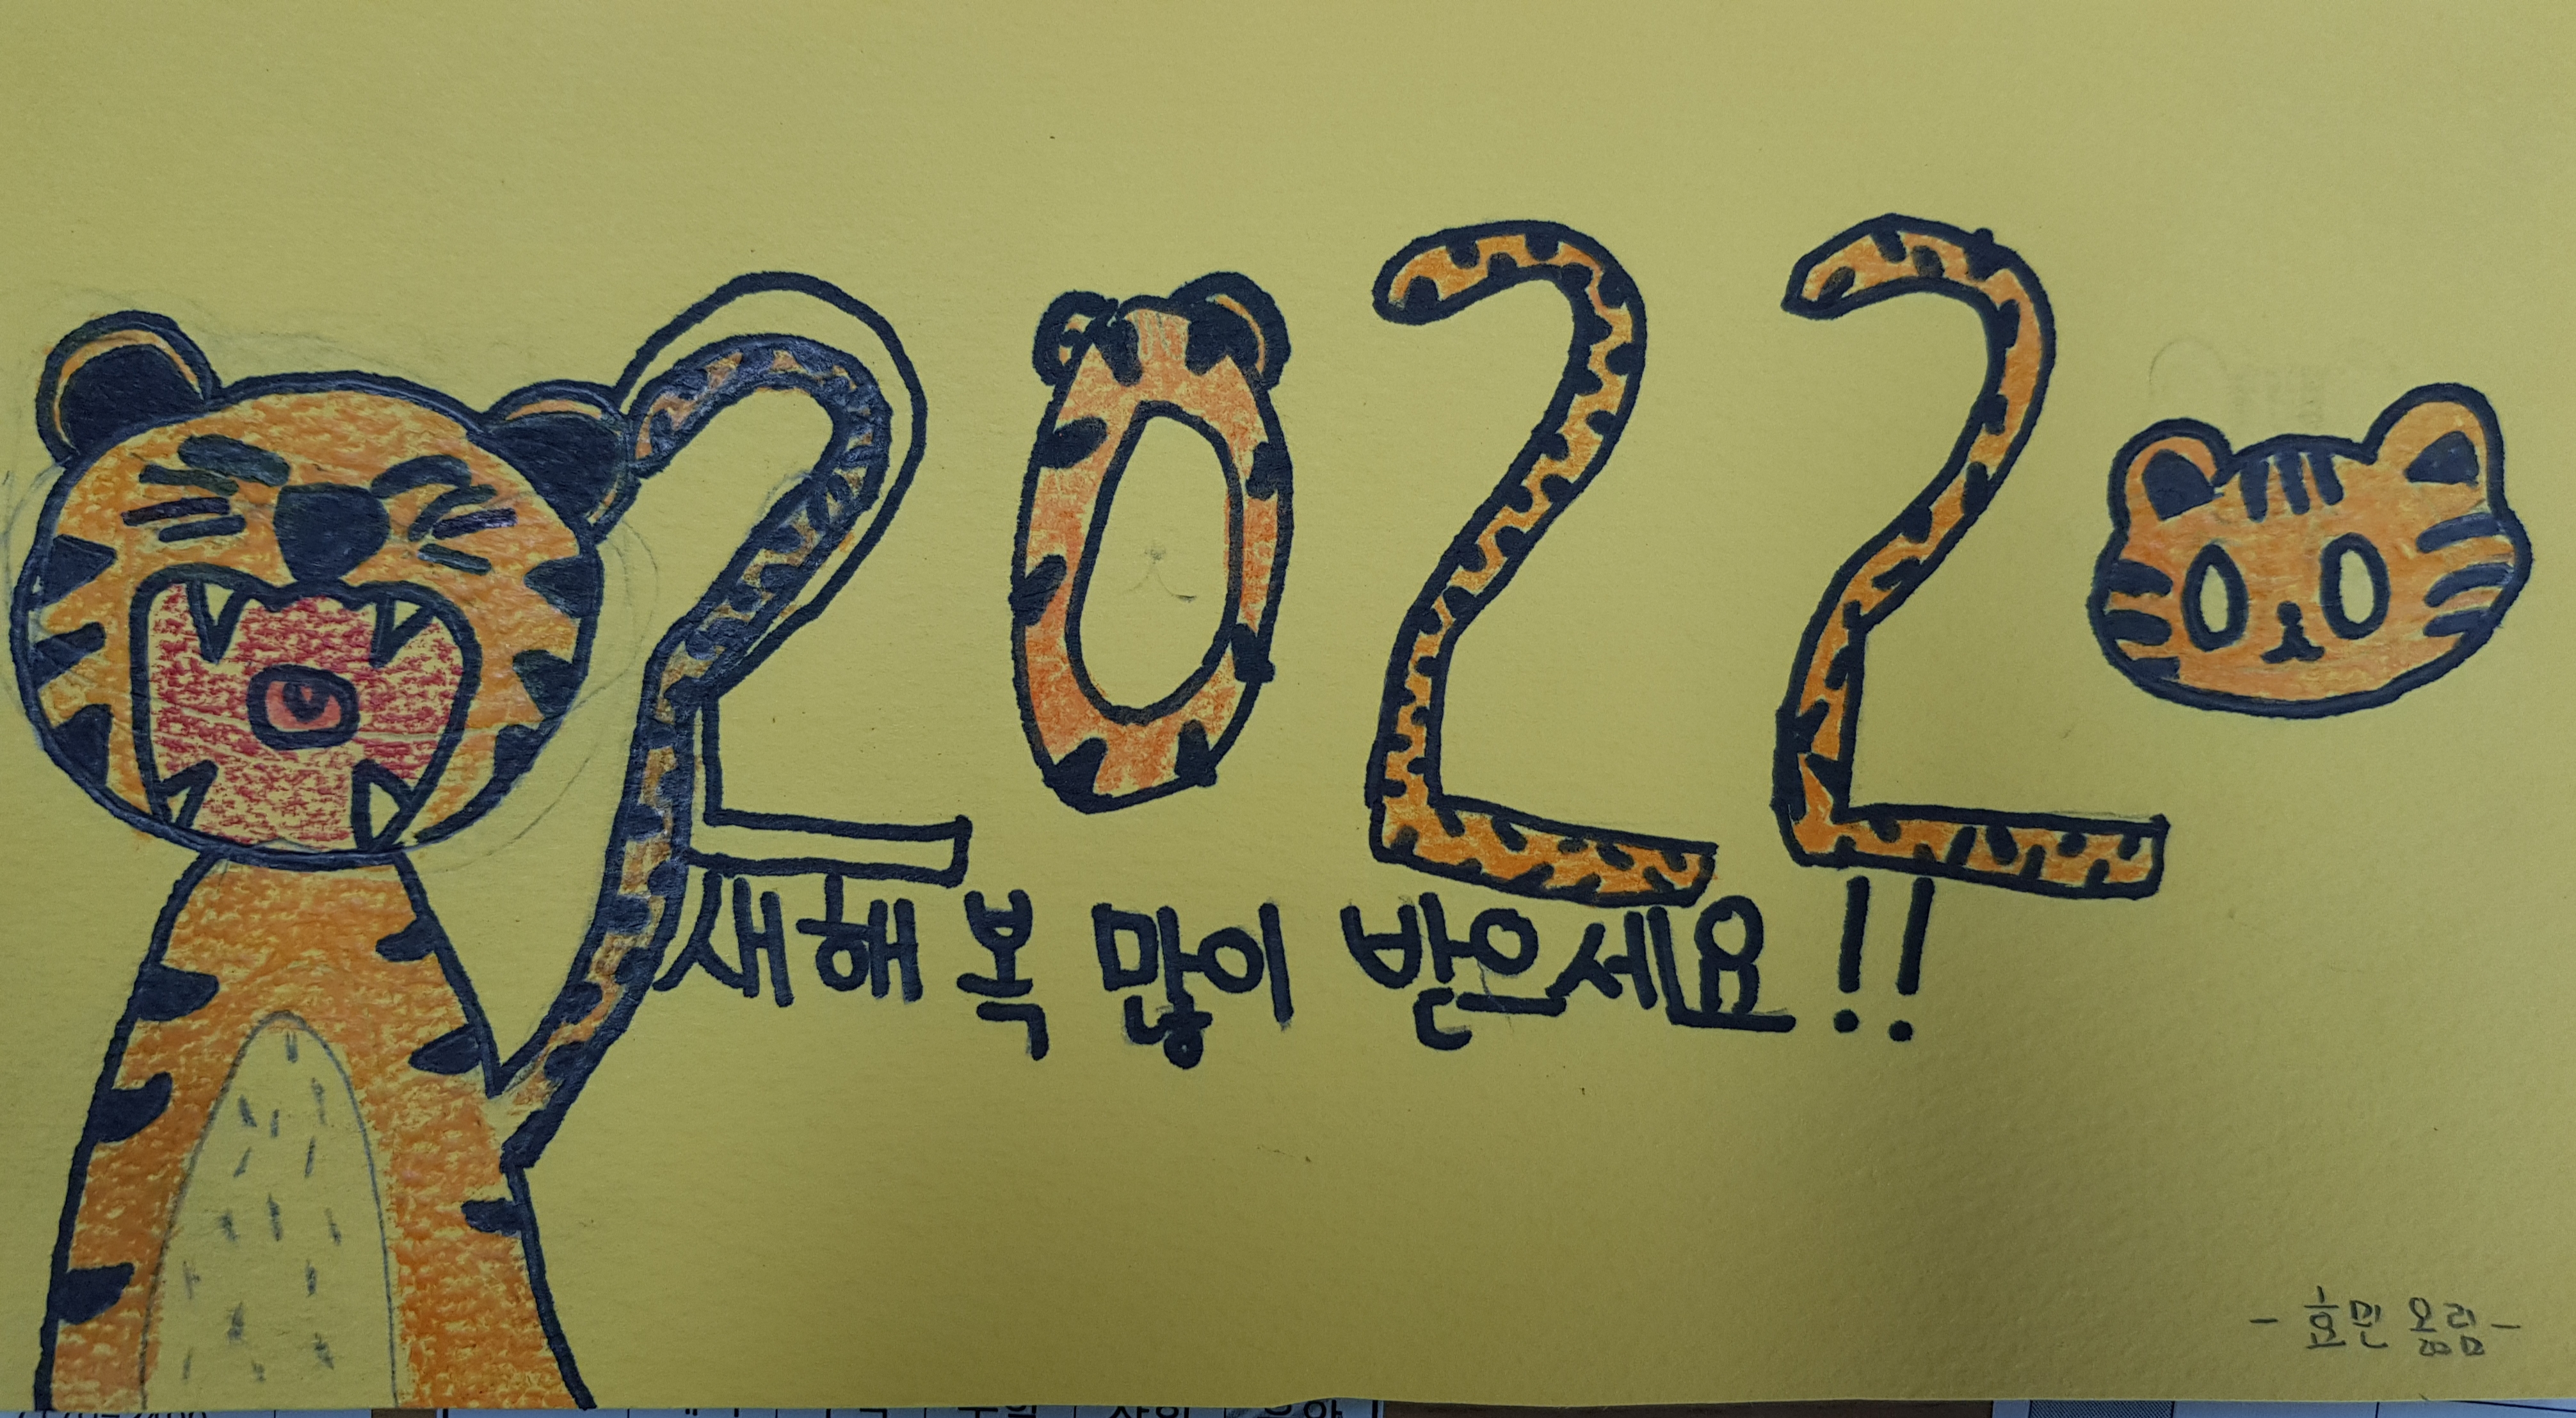 2022
새해 복 많이 받으세요!!
- 효민 올림 -